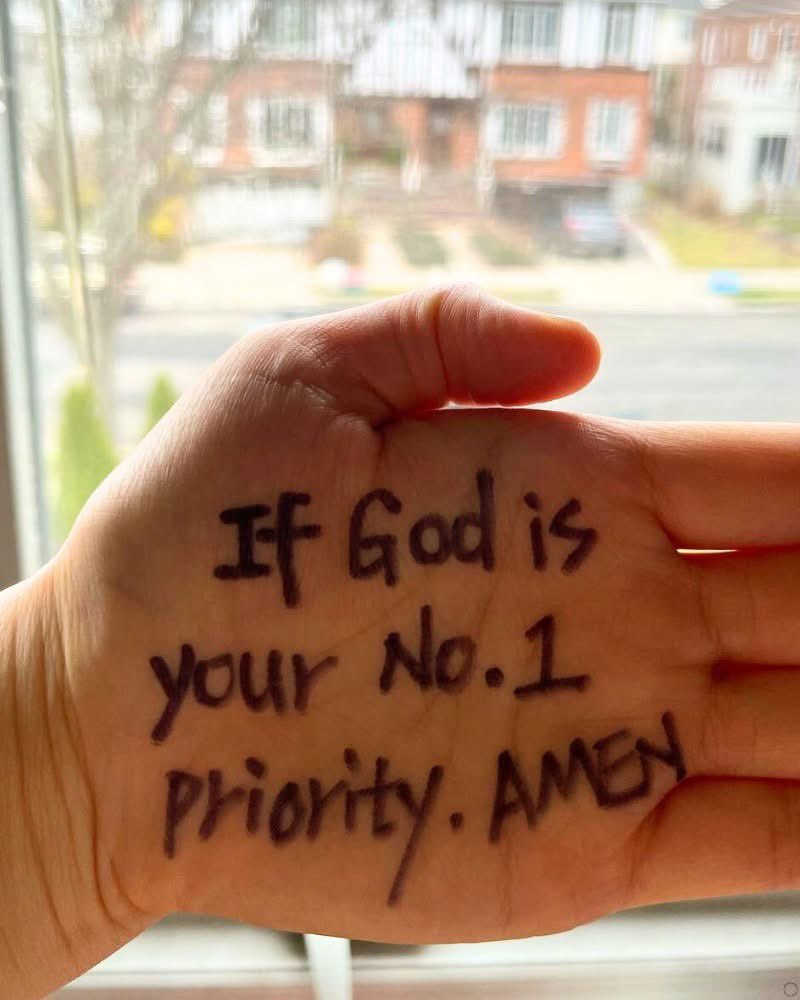 If God is
your No.1
priority. AMEN